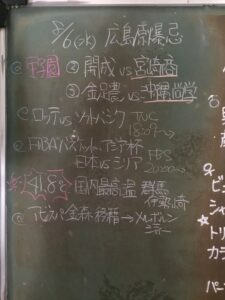 8/6(水) 広島原爆忌
@甲子園 ② 開成 vs 宮崎商
③ 金足農 vs 沖縄尚学
@ロッテ vs ソフトバンク
@FIBAバスケットアジア杯
日本 vs シリア FBS
41.8℃ 国内最高温 群馬
伊勢崎
@アビスパ金森移籍→メルボルン
ビュ
シャ
★トリ
カラ
パー